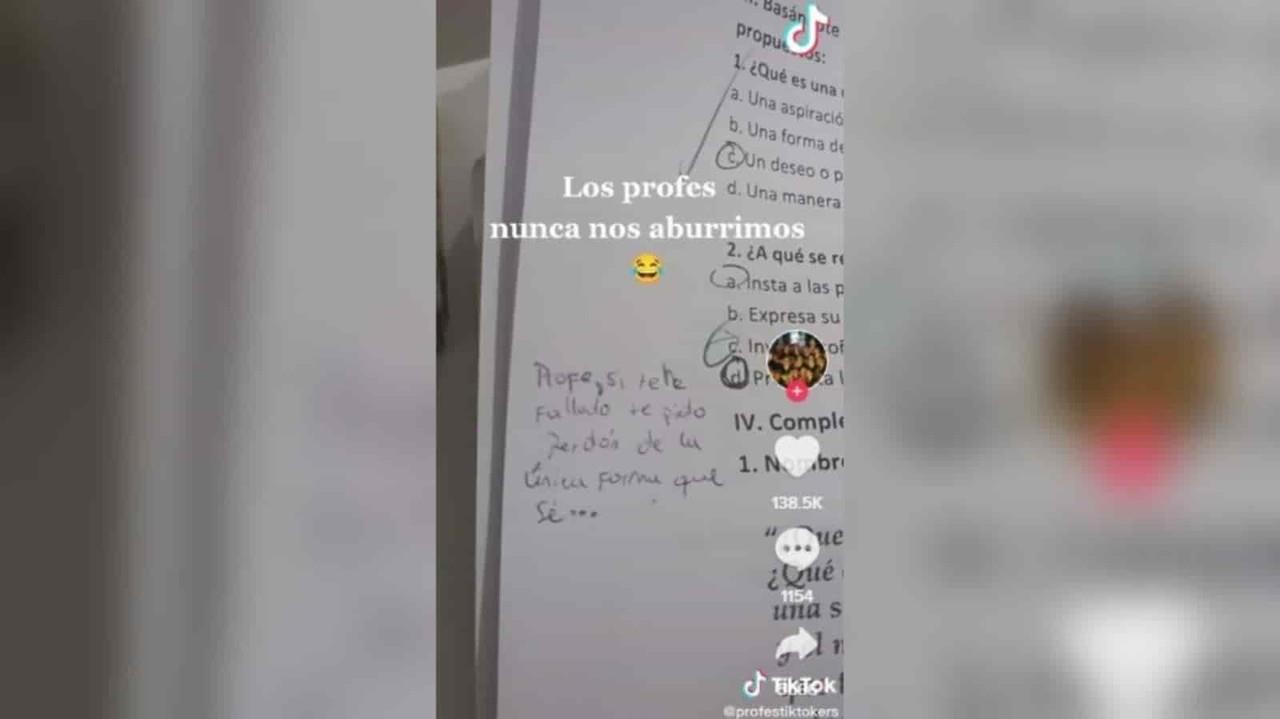 propuestos:
1. ¿Qué es una
a. Una aspiració
b. Una forma de
c. Un deseo o p
Los profes
d. Una manera
nunca nos aburrimos
2. ¿A qué se re
a. Insta a las p
b. Expresa su
c. In
d. Pr
Profe, si te he
fallado te pido
perdón de la
única forma que
sé...
IV. Comple
1. Nombre
138.5K
“ Que
¿Qué
1154
una s
TikTok
@profestiktokers